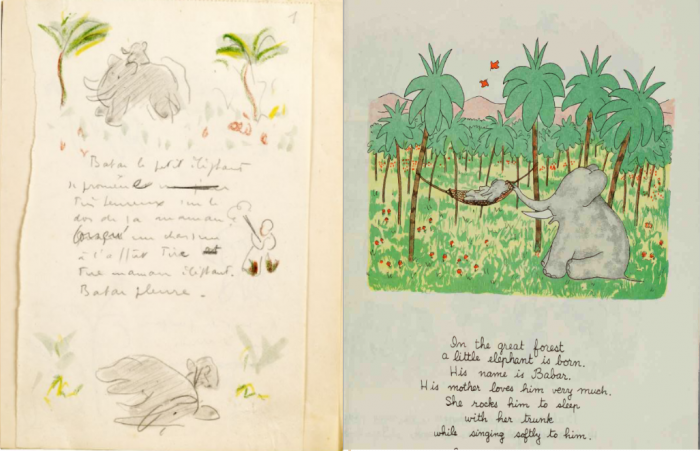 1
Babar le petit éléphant
se promène
très heureux sur le
dos de sa maman
un chasseur
à l'affût tire
tue maman éléphant.
Babar pleure.
In the great forest
a little elephant is born.
His name is Babar.
His mother loves him very much.
She rocks him to sleep
with her trunk
while singing softly to him.